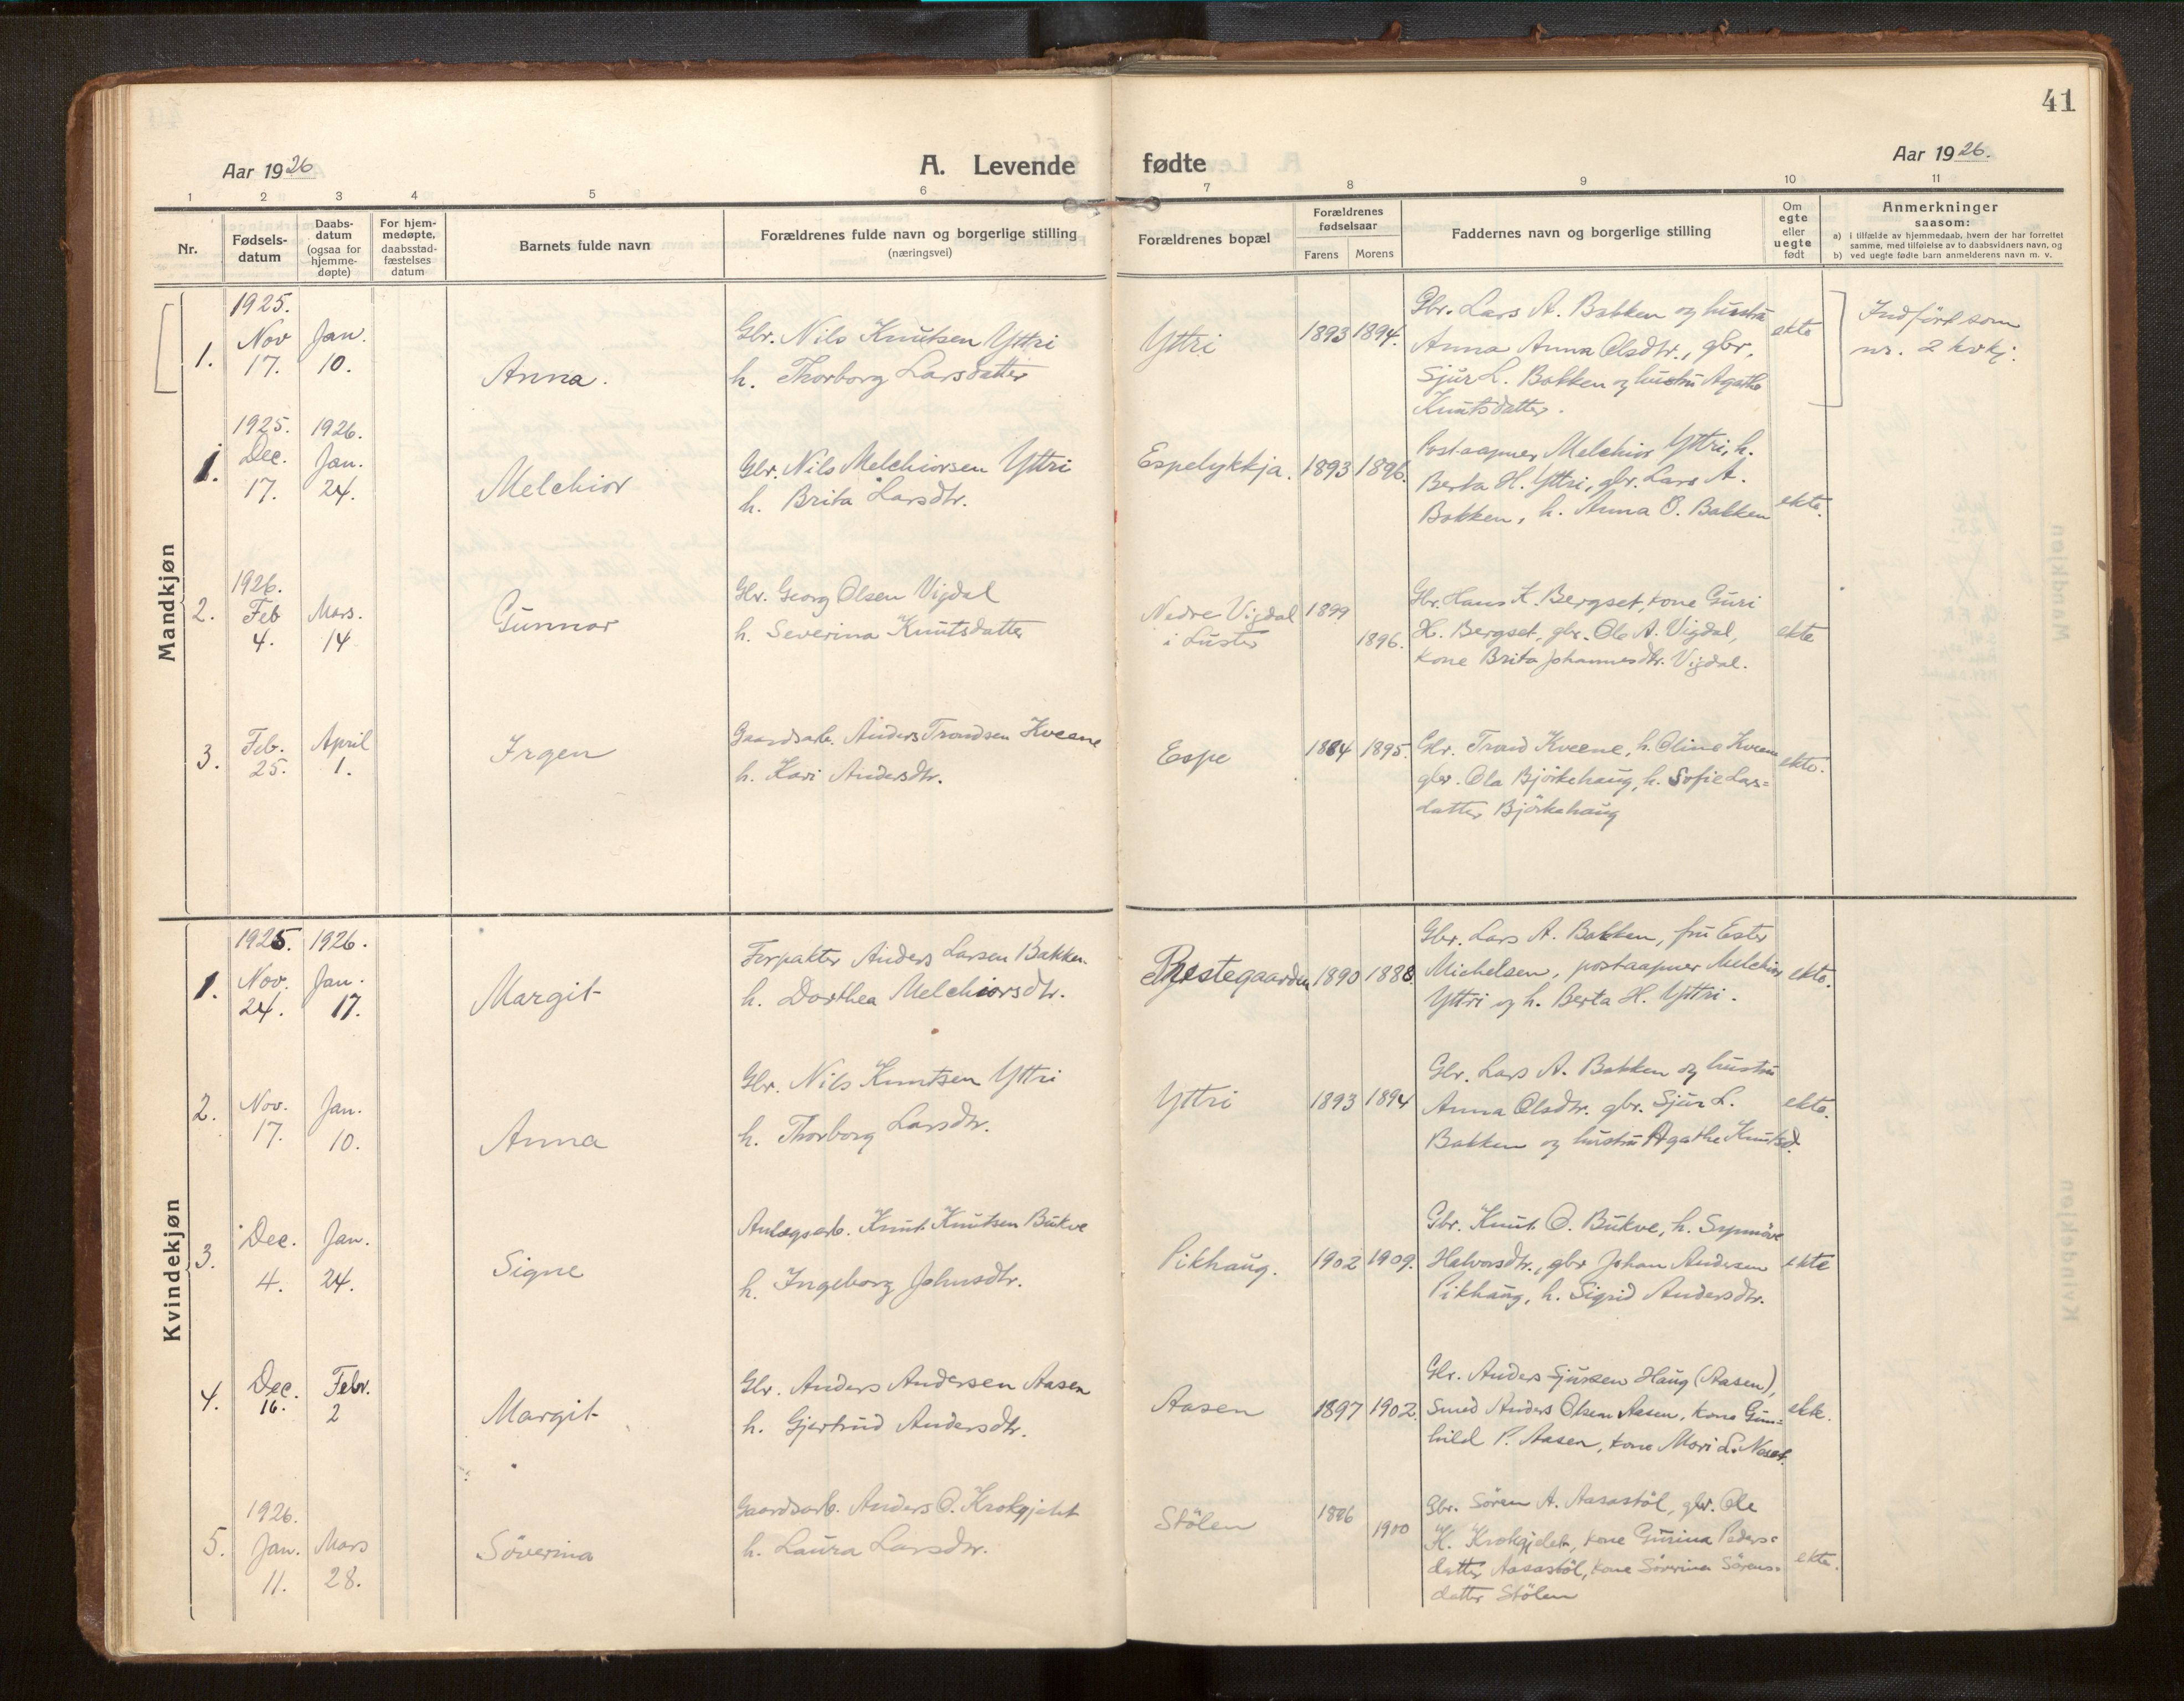 41
Aar 1926
A. Levende fødte
Aar 1926.
1 2 3 4 5 6 7 8 9 10 11
Nr.
Fødsels-
datum
Daabs-
datum
(ogsaa for
hjemme-
døpte)
For hjem-
medøpte,
daabsstad-
fæstelses
datum
Barnets fulde navn
Forældrenes fulde navn og borgerlige stilling
(næringsvei)
Forældrenes bopæl
Forældrenes
fødselsaar
Farens Morens
Faddernes navn og borgerlige stilling
Om
egte
eller
uegte
født
Anmerkninger
saasom:
a) i tilfælde av hjemmedaab, hvem der har forrettet
samme, med tilføielse av to daabsvidners navn, og
b) ved uegte fødte barn anmelderens navn m. v.
Mandkjøn
1.
1925.
Nov
17.
Jan.
10.
Anna.
Gbr. Nils Knutsen Yttri
h. Thorborg Larsdatter
Yttri
1893 1894.
Gbr. Lars A. Bakken og hustru
Anna Anna Olsdtr., gbr.
Sjur L. Bakken og hustru Agathe
Knutsdatter.
ekte
Indført som
nr. 2 kvkj.
1.
1925.
Dec.
17.
1926.
Jan.
24.
Melchior
Gbr. Nils Melchiorsen Yttri
h. Brita Larsdtr.
Espelykkja.
1893 1896.
Postaapner Melchior Yttri, h.
Berta H. Yttri, gbr. Lars A.
Bakken, h. Anna O. Bakken
ekte.
2.
1926.
Feb
4.
Mars.
14
Gunnar
Gbr. Georg Olsen Vigdal
h. Severina Knutsdatter
Nedre Vigdal
i Luster
1899
1896.
Gbr. Hans K. Bergset, kone Guri
H. Bergset, gbr. Ole A. Vigdal,
kone Brita Johannesdtr. Vigdal.
ekte
3.
Feb.
25.
April
1.
Irgen
Gaardsarb. Anders Trondsen Kveene
h. Kari Andersdtr.
Espe
1884 1895.
Gbr. Trond Kveene, h. Oline Kveene
gbr. Ola Bjørkehaug, h. Sofie Lars=
datter Bjørkehaug
ekte.
Kvindekjøn
1.
1925.
Nov.
24.
1926.
Jan.
17.
Margit
Forpakter Anders Larsen Bakken.
h. Dorthea Melchiorsdtr.
Prestegaarden
1890 1888.
Gbr. Lars A. Bakken, fru Ester
Michelsen, postaapner Melchior
Yttri og h. Berta H. Yttri.
ekte.
2.
Nov.
17.
Jan.
10.
Anna
Gbr. Nils Knutsen Yttri
h. Thorborg Larsdtr.
Yttri
1893 1894
Gbr. Lars A. Bakken og hustru
Anna Olsdtr. gbr. Sjur L.
Bakken og hustru Agathe Knutsd.
ekte.
3.
Dec.
4.
Jan.
24.
Signe
Anlægsarb. Knut Knutsen Bukve
h. Ingeborg Johnsdtr.
Pikhaug.
1902 1909.
Gbr. Knut O. Bukve, h. Synnøve
Halvorsdtr., gbr Johan Andersen
Pikhaug, h. Sigrid Andersdtr.
ekte
4.
Dec.
16.
Febr.
2
Margit
Gbr. Anders Andersen Aasen
h. Gjertrud Andersdtr.
Aasen
1897 1902.
Gbr. Anders Sjursen Haug (Aasen),
Smed Anders Olsen Aasen, kone Gun=
hild P. Aasen, kone Mari L. Neset.
ekte.
5.
1926.
Jan.
11.
Mars
28.
Søverina
Gaardsarb. Anders O. Krokgjelet
h. Laura Larsdtr.
Stølen
1886
1900
Gbr. Søren A. Aasastøl, gbr. Ole
H. Krokgjelet, kone Gurina Peders=
datter Aasastøl, kone Søverina Sørens=
datter Stølen
ekte.